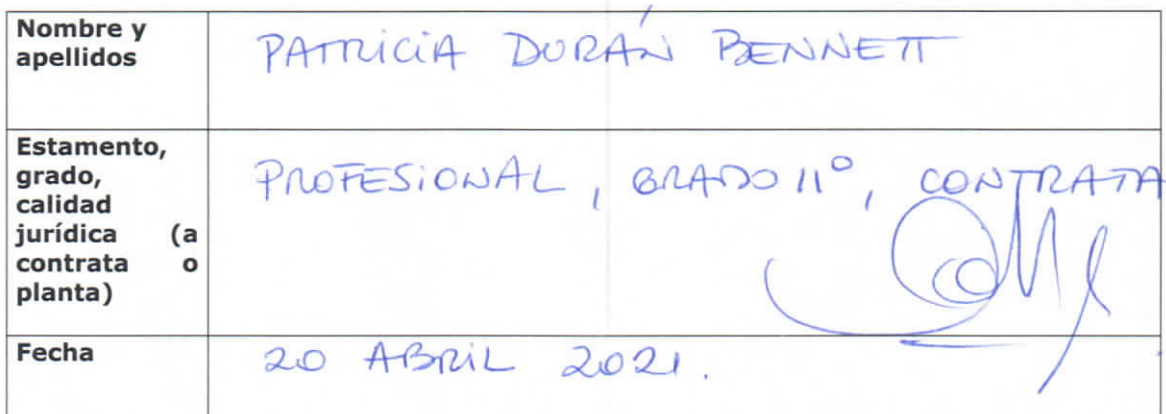 Nombre y
apellidos
PATRICIA DURÁN BENNETT
Estamento,
grado,
calidad
jurídica (a
contrata o
planta)
PROFESIONAL, GRADO 11°, CONTRATA
Fecha
20 ABRIL 2021.